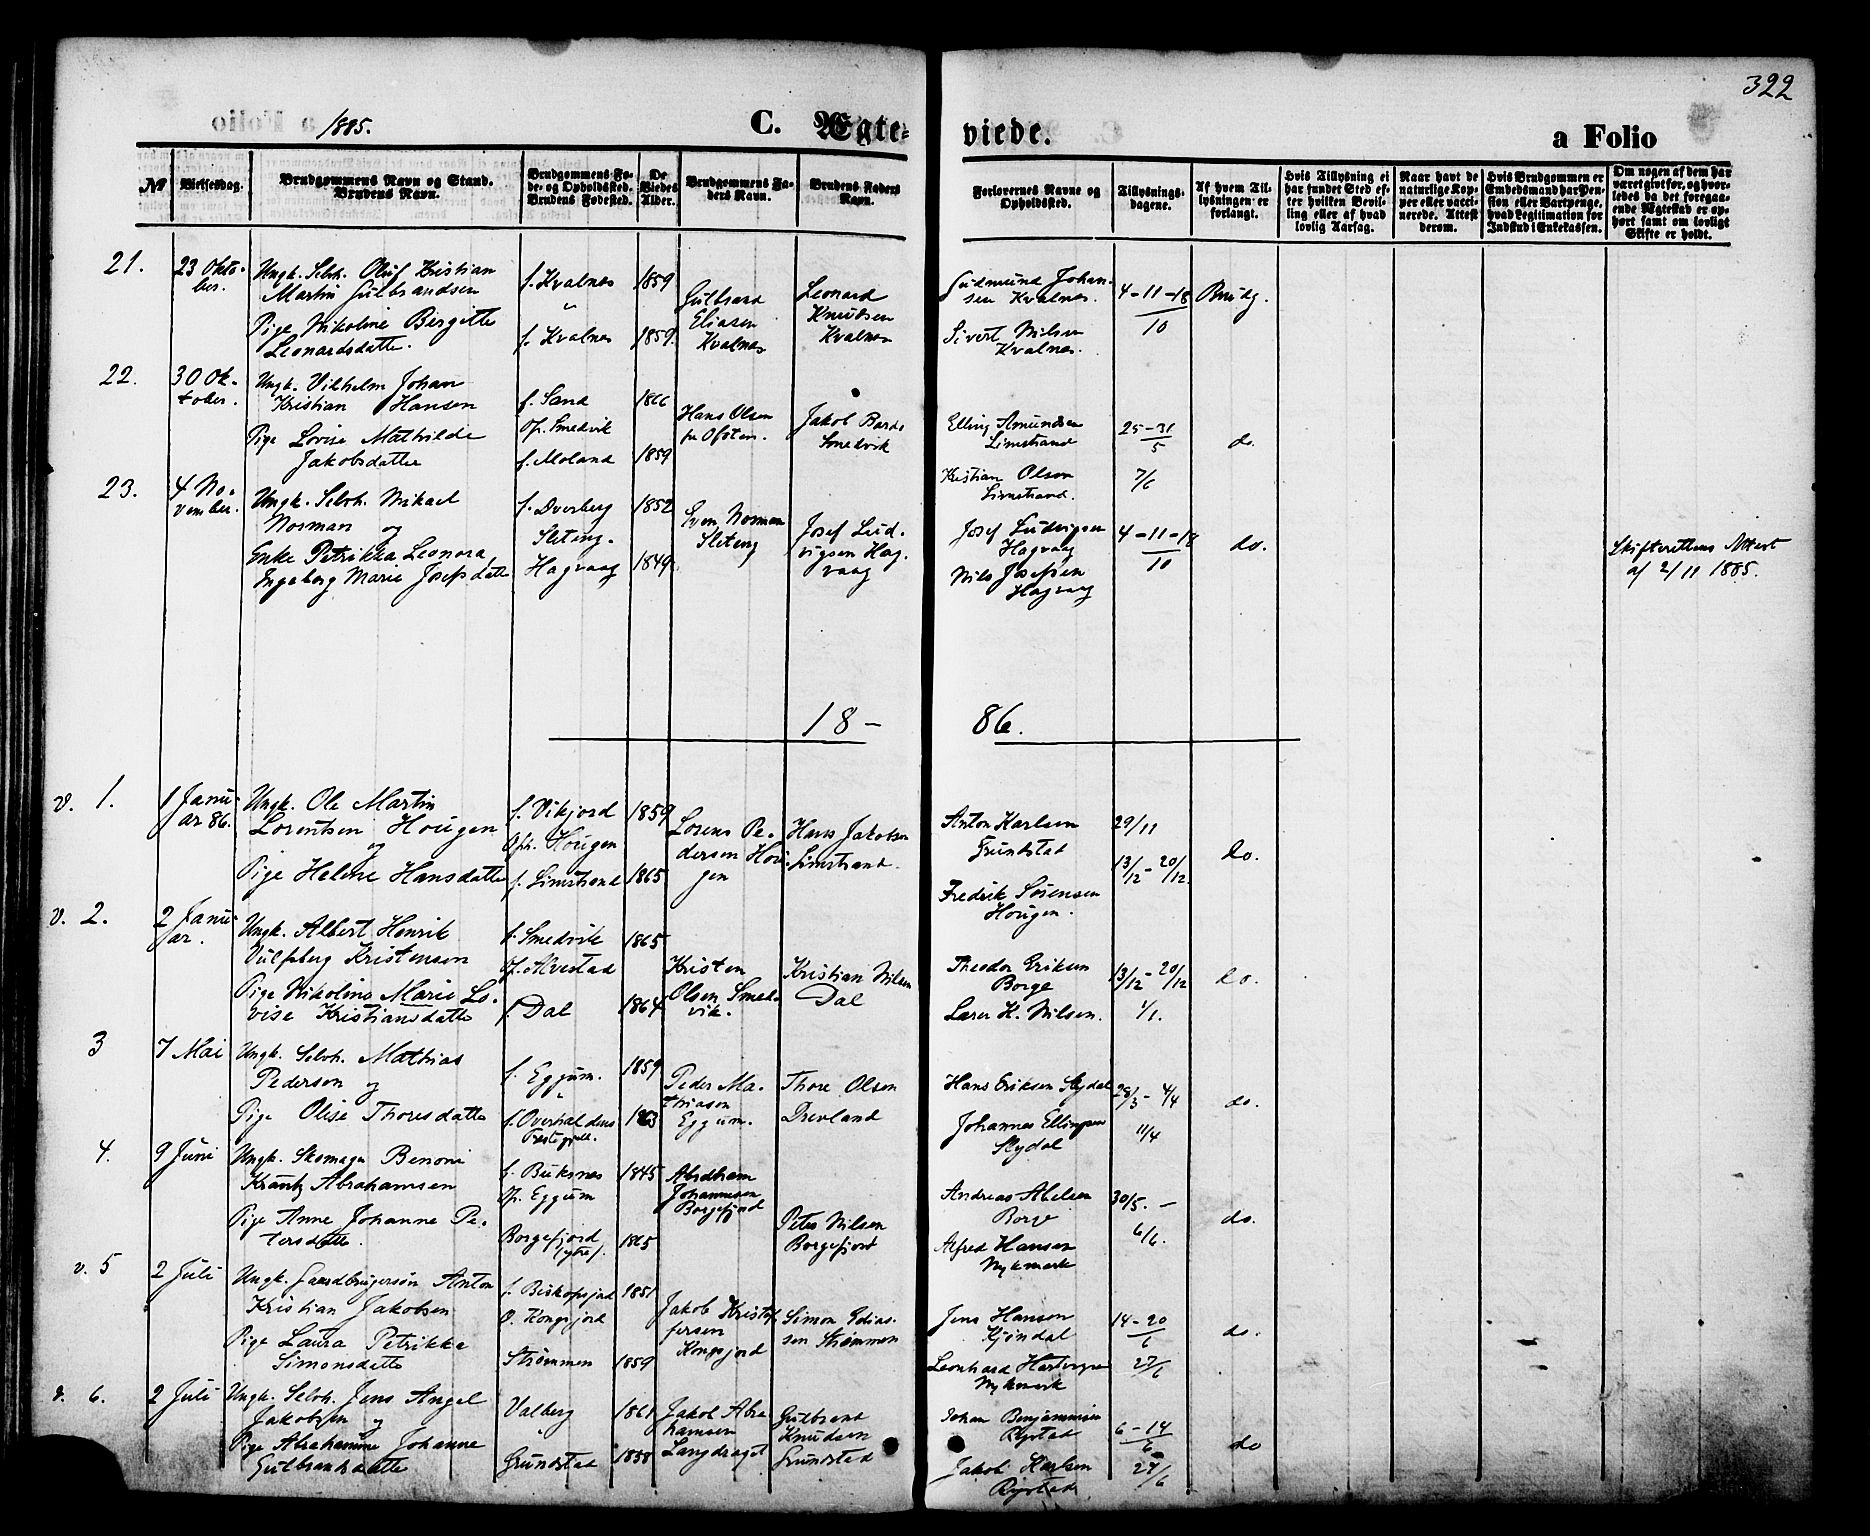 322
1885.
C. Ægte-
viede.
a Folio
№
Vielsesdag.
Brudgommens Navn og Stand.
Brudens Navn.
Brudgommens Fø-
de- og Opholdssted.
Brudens Fødested.
De
Viedes
Alder.
Brudgommens Fa-
ders Navn.
Brudens Faders
Navn.
Forlovernes Navne og
Opholdssted.
Tillysnings-
dagene.
Af hvem Til-
lysningen er
forlangt.
Hvis Tillysning ei
har fundet Sted ef-
ter hvilken Bevil-
ling eller af hvad
lovlig Aarsag.
Naar havt de
naturlige Kop-
per eller vacci-
nerede. Attest
derom.
Hvis Brudgommen er
Embedsmand har Pen-
sion eller Vartpenge,
hvad Legitimation for
Indskud i Enkekassen.
Om nogen af dem har
været gift før, og hvor-
ledes da det foregaa-
ende Ægteskab er op-
hørt samt om lovligt
Skifte er holdt.
21.
23 Okto-
ber.
Ungk. Selvh. Oluf Kristian
Martin Gulbrandsen
Pige Nikoline Birgitte
Leonardsdatter.
f. Kvalnes
"
f. Kvalnes
1859
1859
Gulbrand
Eliasen
Kvalnes
Leonard
Knudsen
Kvalnes
Gudmund Johan-
sen Kvalnes.
Sivert Nilsen
Kvalnes.
4-11-18
10
Brudg.
22.
30 Ok-
tober.
Ungk. Vilhelm Johan
Kristian Hansen
Pige Lovise Mathilde
Jakobsdatter
f. Sand
Op. Smedvik
f. Moland
1866
1859
Hans Olsen
fr Ofoten.
Jakob
Smedvik
Elling Amundsen
Limstrand
Kristian Olsen
Limstrand.
25-31
5
7/6
do.
23.
4 No-
vember.
Ungk. Selvh. Mikael
Norman og
Enke Petrikka Leonora
Ingeborg Marie Josefsdatter
f. Dverberg
Sleteng.
Hagvaag
1852
1849.
Sven Norman
Sleteng
Josef Lud-
vigsen Hag-
vaag
Josef Ludvigsen
Hagvaag
Nils Josefsen
Hagvaag
4-11-18
10
do.
Skifterettens Attest
af 2/11 1885.
18-
86.
v. 1.
1 Janu-
ar 86.
Ungk. Ole Martin
Lorentsen Hougen
og
Pige Helene Hansdatter
f. Vikjord
Oph. Hougen
f. Limstrand
1859
1865
Lorens Pe-
dersen Hou-
gen
Hans Jakobsen
Limstrand.
Anton Karlsen
Grundstad
Fredrik Sørensen
Hougen.
29/11
13/12 - 20/12.
do.
v. 2.
2 Janu-
ar.
Ungk. Albert Henrik
Vulfsberg Kristensen
Pige Nikoline Marie Lo-
vise Kristiansdatter
f. Smedvik
Op. Alvestad
f. Dal
1865
1864
Kristen
Olsen Smed-
vik.
Kristian Nilsen
Dal
Theodor Eriksen
Borge
Larer K. Nilsen.
13/12 - 20/12
1/1.
do.
3
7 Mai
Ungk. Selvh. Mathias
Pedersen og
Pige Olise Thoresdatter
f. Eggum.
"
f. Overhaldens
Præstegjeld.
1859
1863
Peder Ma-
thiasen
Eggum.
Thore Olsen
Drevland
Hans Eriksen Slydal
Johannes Ellingsen
Slydal
28/3 - 4/4
11/4
do.
4.
9 Juni
Ungk. Skomager Benoni
Krantz Abrahamsen
Pige Anne Johanne Pe-
tersdatter.
f. Buksnes
Op. Eggum
Borgefjord
(ytre).
1845
1865
Abraham
Johannesen
Borgefjord
Peter Nilsen
Borgefjord
Andreas Abelsen
Borge
Alfred Hansen
Nykmark
30/5. -
6/6.
do.
v. 5
2 Juli
Ungk. Gaardbrugersøn Anton
Kristian Jakobsen
Pige Laura Petrikka
Simonsdatter
f. Biskopsjord
O. Kongsjord
Strømmen
1851
1859
Jakob Kristof-
fersen
Kongsjord
Simon
sen Strømmen
Jens Hansen
Kjøndal
Leonhard
Nykmark
14-20
6
27/6
do.
v. 6.
2 Juli
Ungk. Selvh. Jens Angel
Jakobsen og
Pige Abrahamine Johanne
Gulbrandsdatter
Valberg
"
Grundstad
1861
1858
Jakob Abra-
hamsen
Langdraget
Gulbrand
Knudsen
Grundstad
Johan Benjaminsen
Rystad
Jakob Karlsen
Rystad
6-14
6
27/6
do